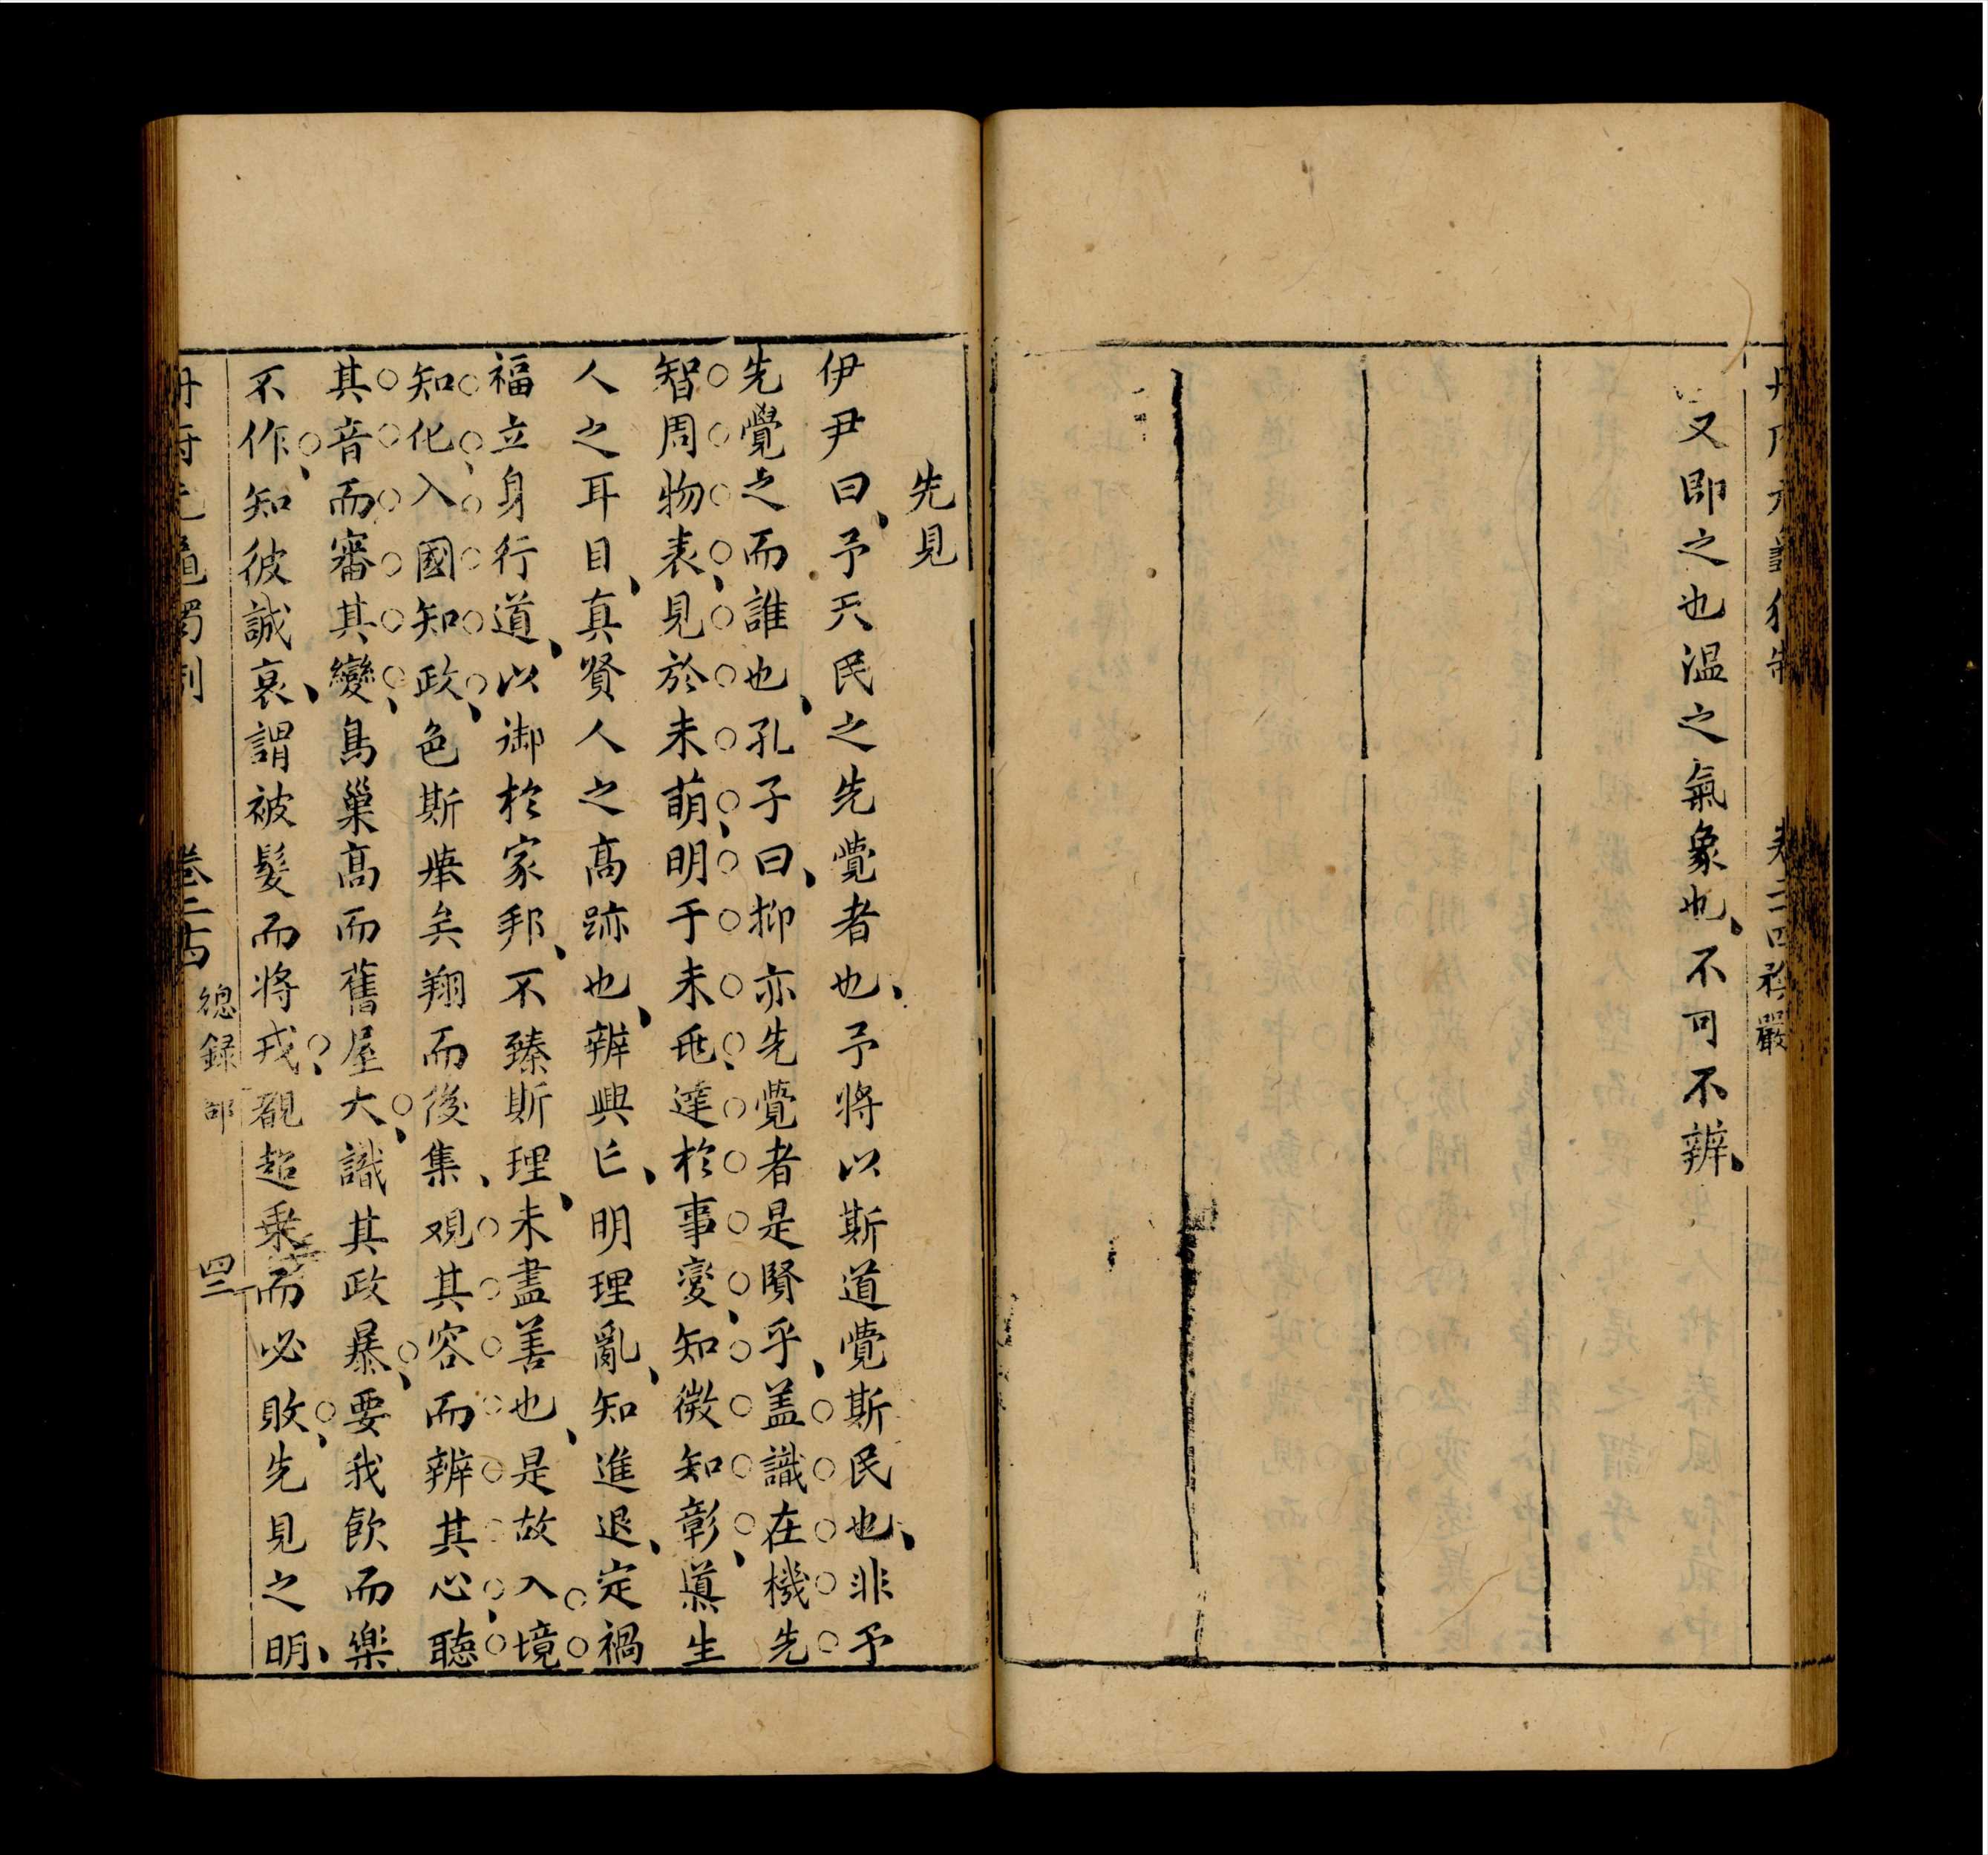 卷二四 矜嚴
又即之也溫之氣象也、不可不辨、
先見
伊尹曰、予天民之先覺者也、予將以斯道覺斯民也、非予
先覺之而誰也、孔子曰、抑亦先覺者是賢乎、盖識在機先
智周物表、見於未萌、明于未形、達於事變、知微知彰、眞生
人之耳目、真賢人之高跡也、辨興亡、明理亂、知進退、定禍
福立身行道、以御於家邦、不臻斯理、未盡善也、是故入境
知化、入國知政、色斯舉矣翔而後集、观其容而辨其心、聽
其音而審其變、鳥巢高而舊屋大、識其政暴、要我飲而樂
不作、知彼誠哀、謂被髮而將戎、覩超乗而必敗、先見之明、
卷二四 總錄部 四二